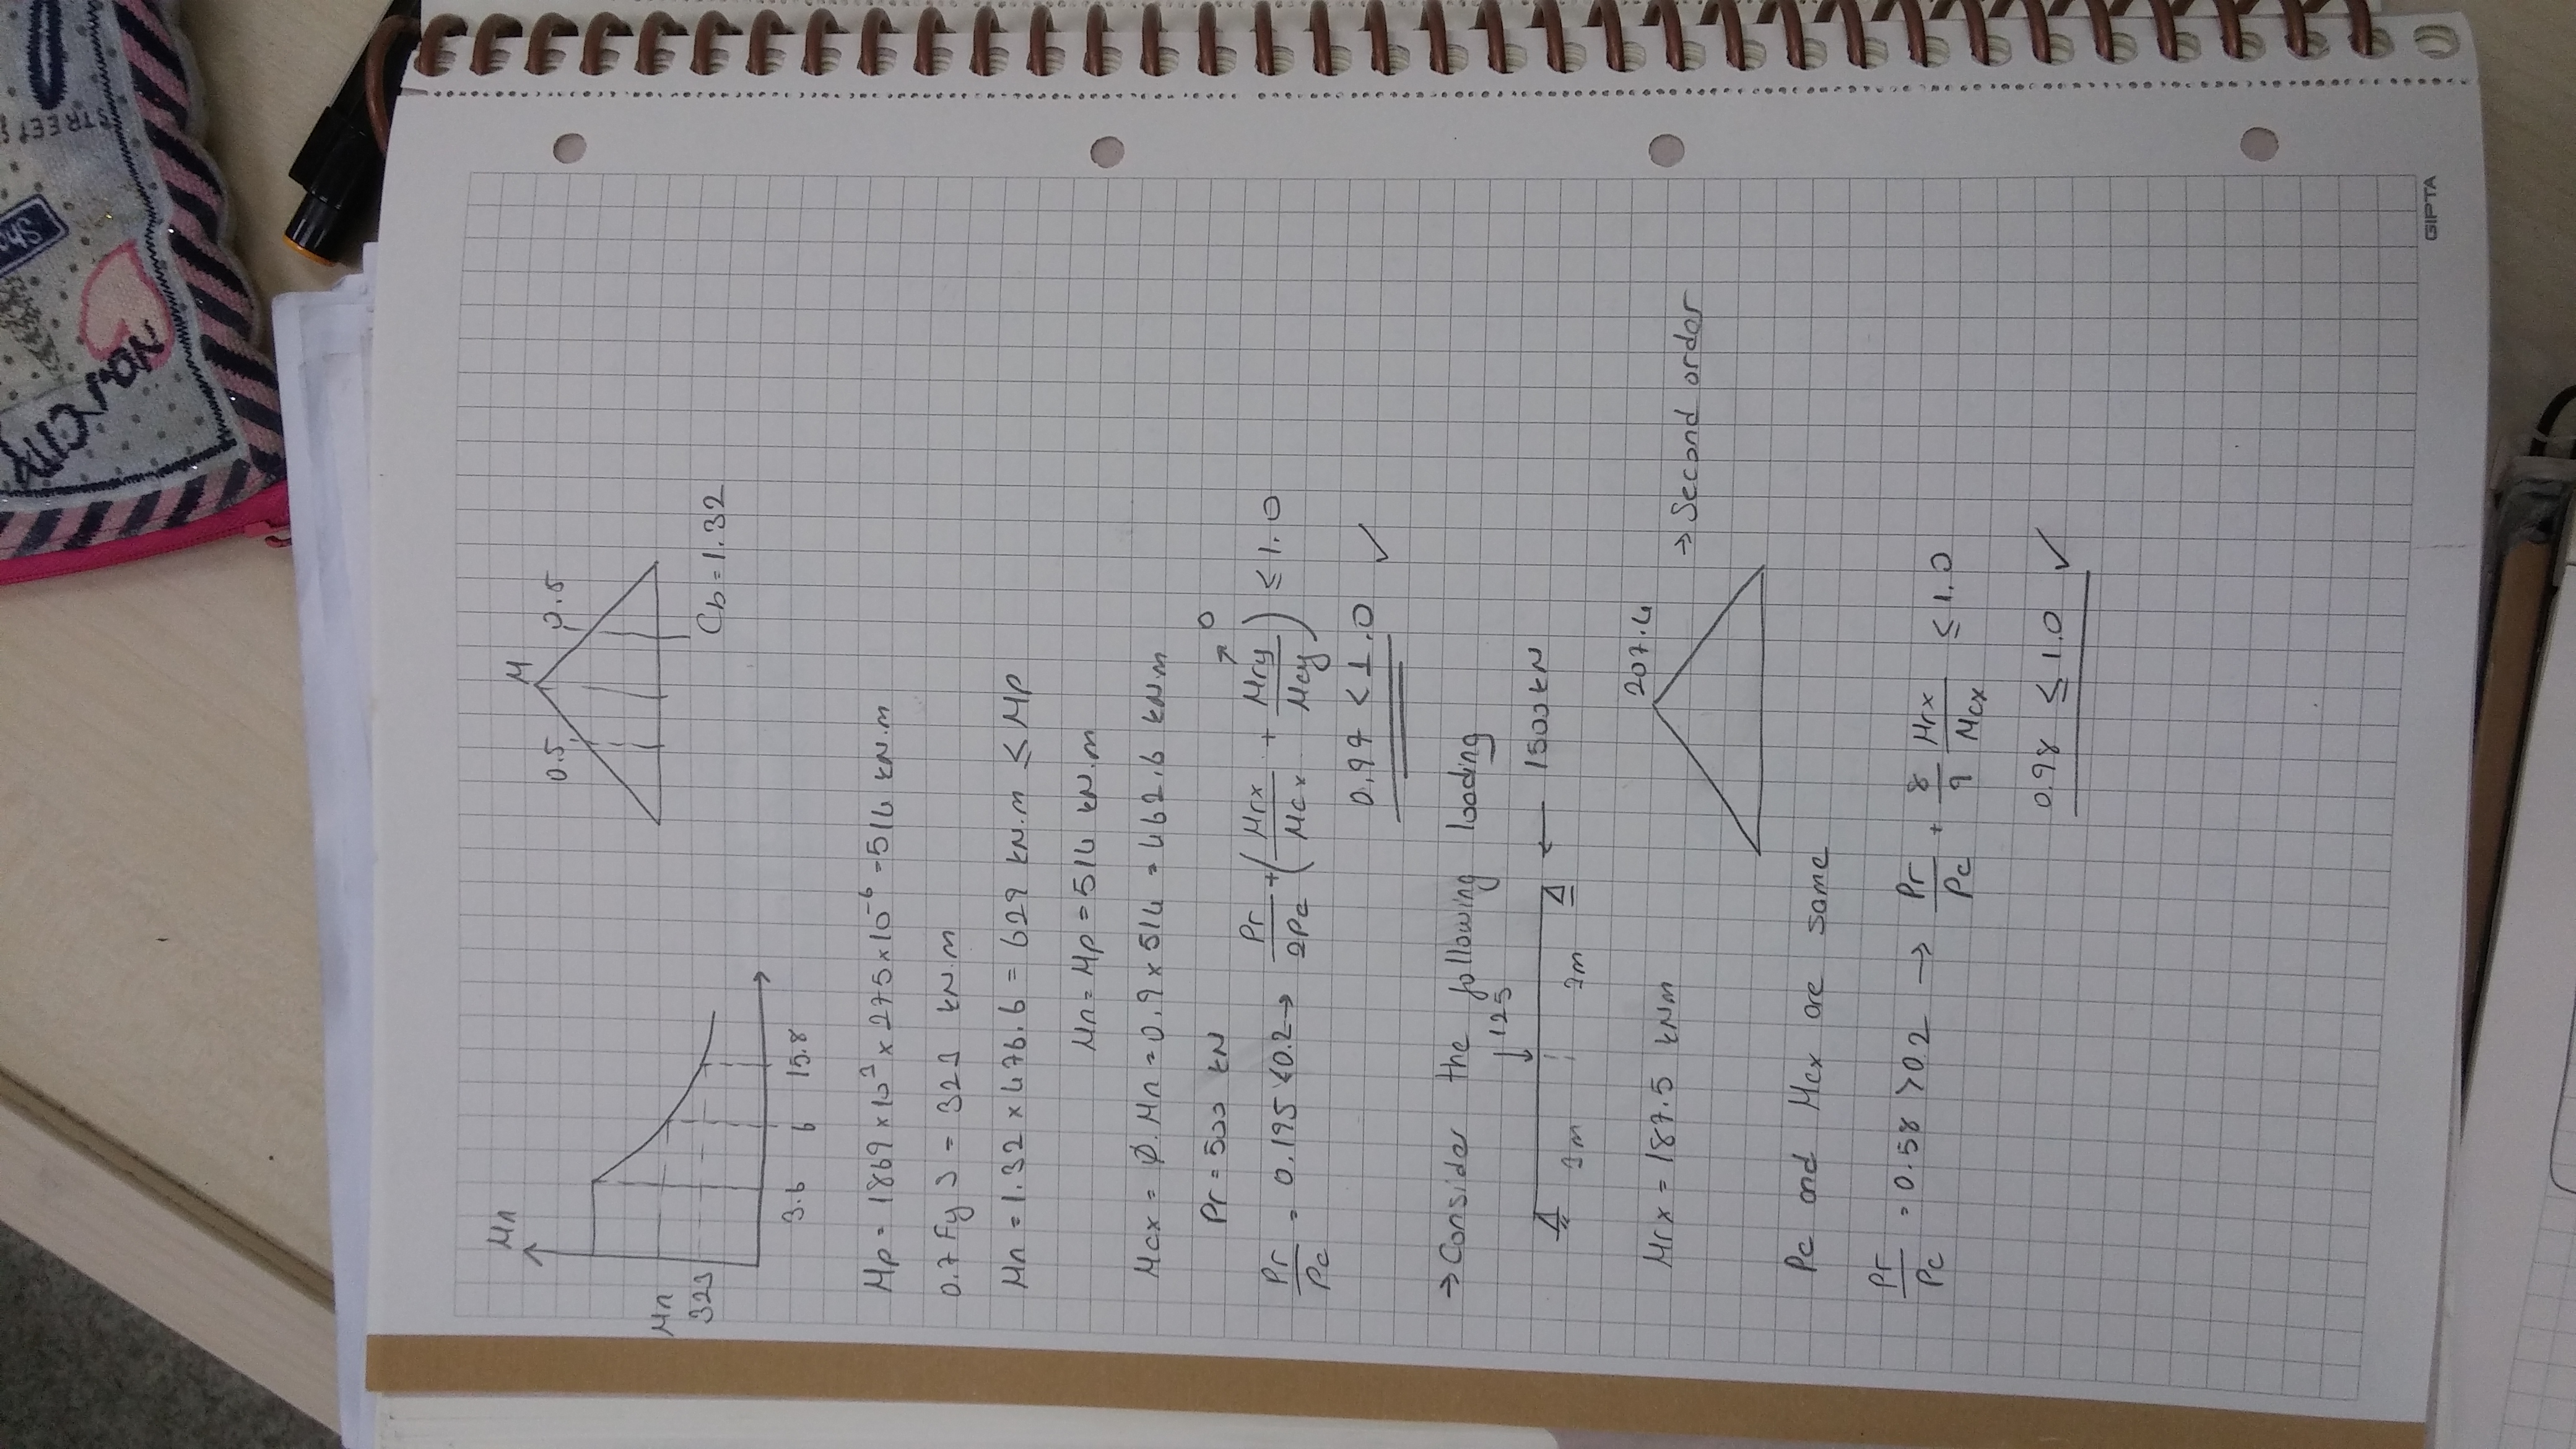 NEW YORK CITY
STREET
Mn
M
0.5
0.5
Mn
323
Cb = 1.32
3.6 6 15.8
Mp = 1869 × 10³ × 275 × 10⁻⁶ = 514 kN.m
0.7 Fy S = 323 kN.m
Mn = 1.32 × 476.6 = 629 kN.m ≤ Mp
Mn = Mp = 514 kN.m
Mcx = Ø.Mn = 0.9 × 514 = 462.6 kN.m
Pr = 500 kN
Pr/Pc = 0.195 < 0.2 → Pr/2Pc + (Mrx/Mcx + Mry/Mcy ↗ 0) ≤ 1.0
0.97 < 1.0 ✓
→ Consider the following loading
↓ 125
← 1500 kN
3m 3m
207.4
Mrx = 187.5 kNm
→ Second order
Pc and Mcx are same
Pr/Pc = 0.58 > 0.2 → Pr/Pc + 8/9 Mrx/Mcx ≤ 1.0
0.98 ≤ 1.0 ✓
GIPTA